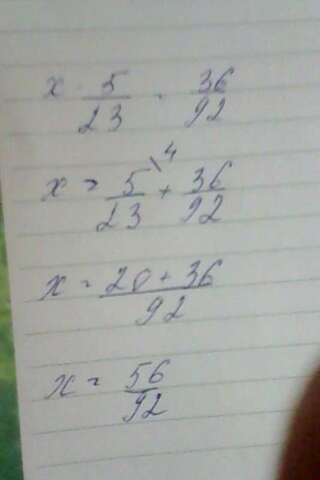 x - 5/23 = 36/92
x = 5/23 \4 + 36/92
x = 20 + 36/92
x = 56/92